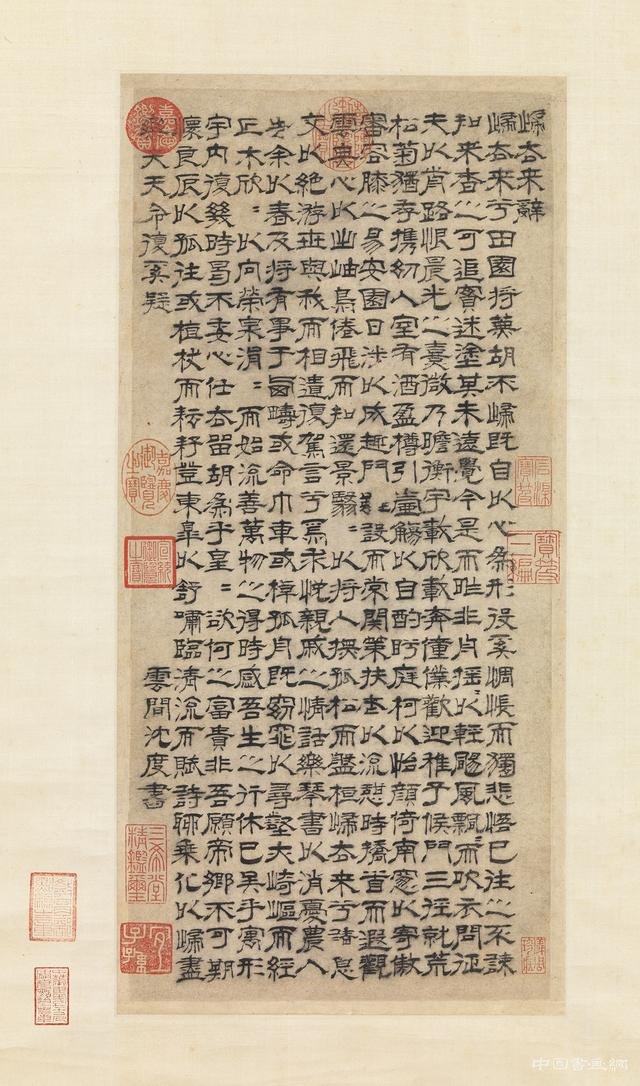 歸去來辭
歸去來兮田園將蕪胡不歸既自以心為形役奚惆悵而獨悲悟已往之不諫
知來者之可追實迷塗其未遠覺今是而昨非舟搖〻以輕颺風飄〻而吹衣問征
夫以前路恨晨光之熹微乃瞻衡宇載欣載奔僮僕歡迎稚子候門三徑就荒
松菊猶存攜幼入室有酒盈樽引壺觴以自酌眄庭柯以怡顏倚南窗以寄傲
審容膝之易安園日涉以成趣門雖設而常關策扶老以流憩時矯首而遐觀
雲無心以出岫鳥倦飛而知還景翳〻以將入撫孤松而盤桓歸去來兮請息
交以絕游世與我而相遺復駕言兮焉求悅親戚之情話樂琴書以消憂農人
告余以春及將有事于西疇或命巾車或棹孤舟既窈窕以尋壑亦崎嶇而經
丘木欣〻以向榮泉涓〻而始流善萬物之得時感吾生之行休已矣乎寓形
宇內復幾時曷不委心任去留胡為乎皇〻欲何之富貴非吾願帝鄉不可期
懷良辰以孤往或植杖而耘耔登東皋以舒嘯臨清流而賦詩聊乘化以歸盡
樂夫天命復奚疑
雲間沈度書
嘉慶鑑賞
石渠寶笈
寶笈三編
嘉慶御覽之寶
宣統御覽之寶
三希堂精鑑璽
宜子孫
中国書画網